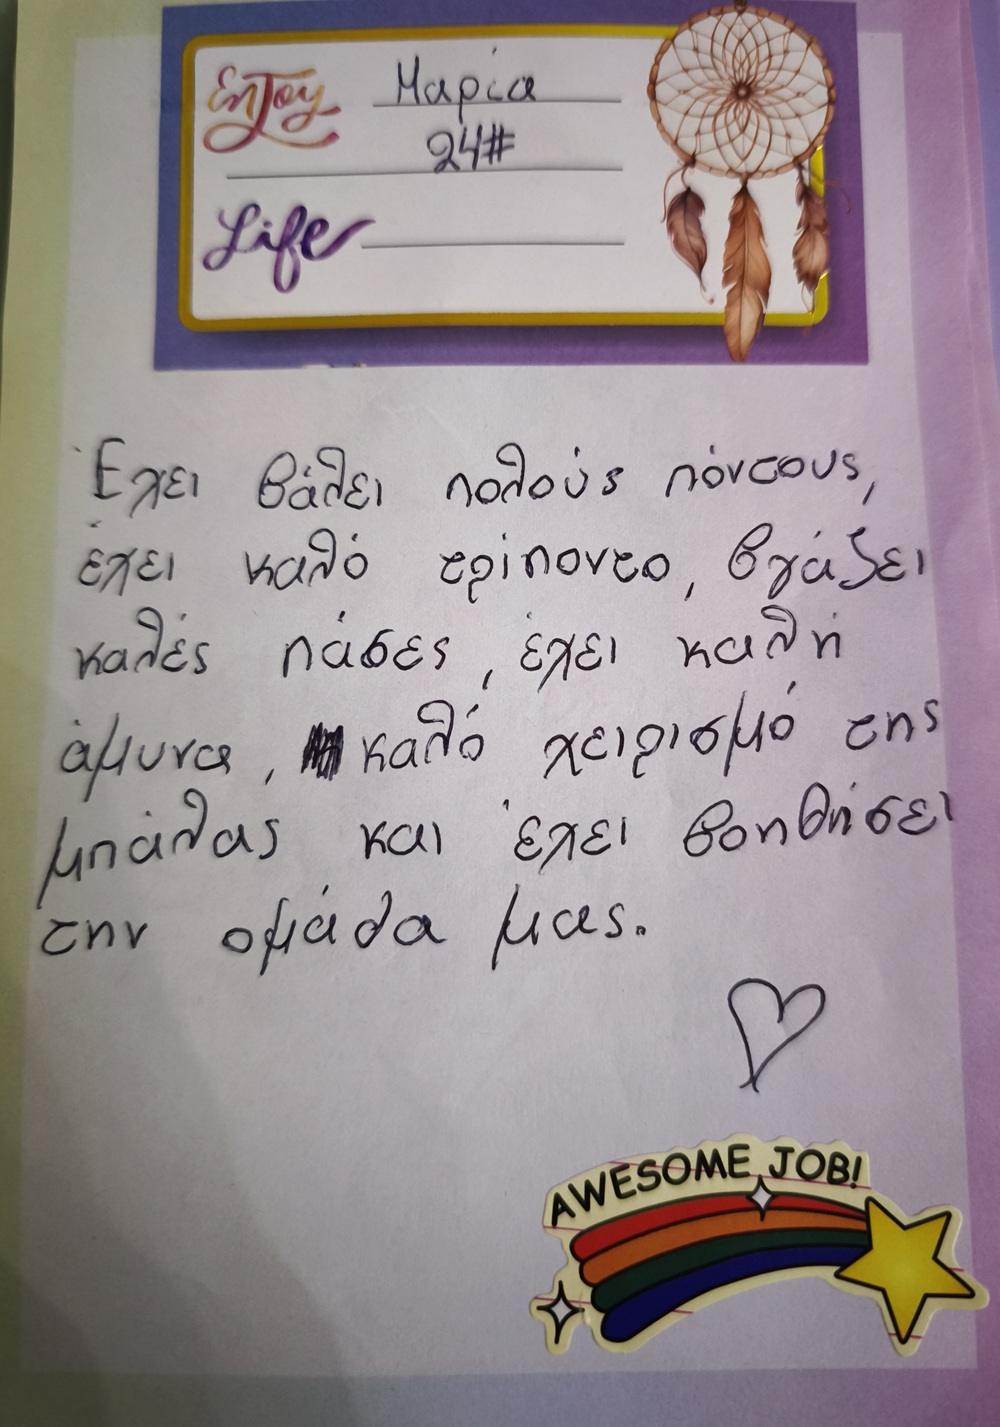 Enjoy Μαρία
24#
Life
Έχει βάλει πολούς πόντους,
έχει καλό τρίποντο, βγάζει
καλές πάσες, έχει καλή
άμυνα, καλό χειρισμό της
μπάλας και έχει βοηθήσει
την ομάδα μας.
AWESOME JOB!